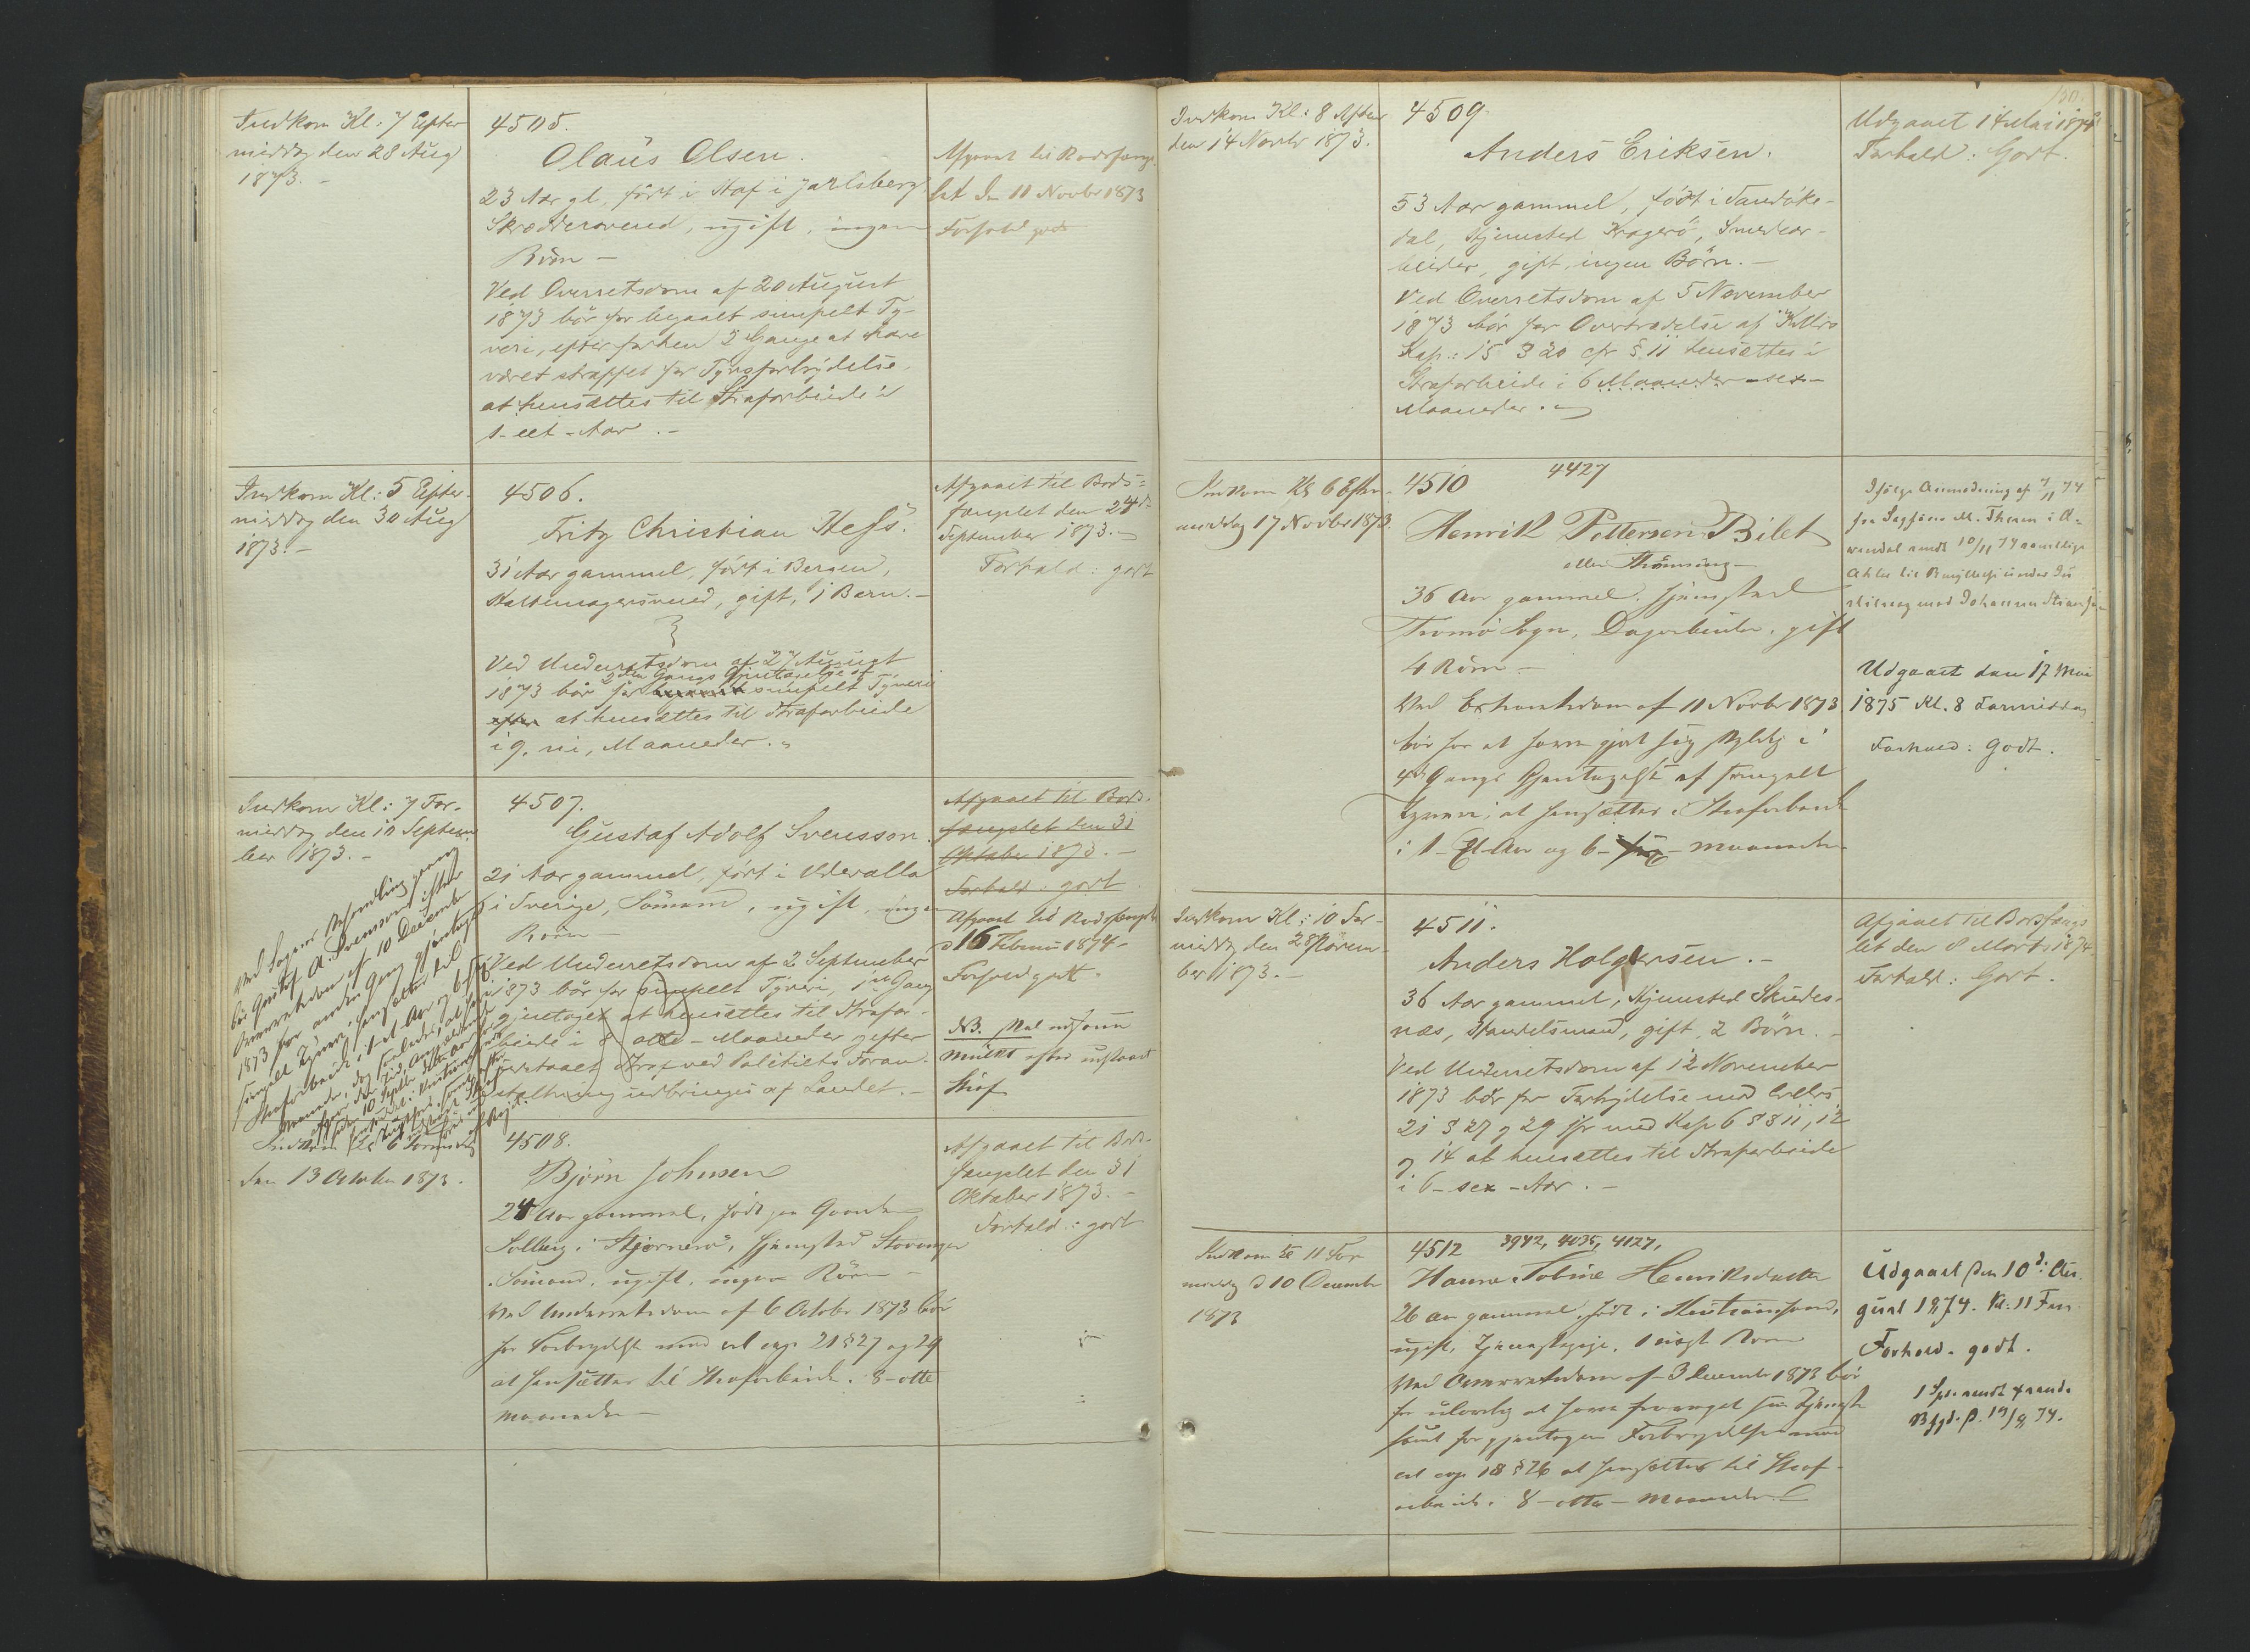 Indkom Kl: 7 Efter
middag den 28 Aug
1873. -
4505.
Olaus Olsen.
23 Aar gl, født i Hof i Jarlsberg
Skræddersvend, ugift, ingen
Børn -
Ved Overretsdom af 20 August
1873 bør for begaaet simpelt Ty-
veri, efter forhen 2 Gange at have
været straffet for Tyvsforbrydelse,
at hensættes til Strafarbeide i
1 - eet - Aar. -
Afgaaet til Bodsfæng
let d. 11 Novbr 1873
Forhold godt
Indkom Kl: 5 Efter-
middag den 30 Aug
1873. -
4506.
Fritz Christian Hess.
31 Aar gammel, født i Bergen,
Hattemagersvend, gift, 1 Barn. -
Ved Underretsdom af 27 August
2den Gangs Gjentagelse af
1873 bør for simpelt Tyveri
efter at hensættes til Strafarbeide
i 9, ni, Maaneder.
Afgaaet til Bods-
fænglet den 24de
September 1873. -
Forhold: godt
Indkom Kl: 7 For-
middag den 10 Septem
ber 1873. -
Ved Sagens Behandling
bør Gustaf A. Svensson
Overretsdom af 10 December
1873 for anden Gang gjentaget
simpelt Tyveri hensættes til
Strafarbeide i 1 - et Aar og 6 -
4507.
Gustaf Adolf Svensson.
21 Aar gammel, født i Udevalla
i Sverige, Sømand, ugift, ingen
Børn -
Ved Underretsdom af 2 September
1873 bør for simpelt Tyveri, 1ste Gang
gjentaget at hensættes til Strafar-
beide i 8 - otte - Maaneder efter
udstaaet Straf ved Politiets Foran-
staltning udbringes af Landet. -
Afgaaet til Bods-
fænglet den 31
Oktober 1873. -
Forhold: godt.
Afgaaet til Bodsfænglet
d 16 Februar 1874 -
Forhold godt.
NB. efter udstaaet
Straf
Indkom Kl 6 Formid
den 13 October 1873.
4508.
Bjørn Johnsen
24 Aar gammel, født paa Gaarden
Solberg i Stjernerø, Hjemsted Stavanger
Sømand, ugift, ingen Børn -
Ved Underretsdom af 6 October 1873 bør
for Forbrydelse mod crl cap 21 § 27 og 29
at hensættes til Strafarbeide i 8 - otte
Maaneder -
Afgaaet til Bods-
fænglet den 31
Oktober 1873. -
Forhold: godt
Indkom Kl: 8 Aften
den 14 Novbr 1873.
4509.
Anders Eriksen.
53 Aar gammel, født i Sandøke-
dal, Hjemsted Kragerø, Smedear-
beider, gift, ingen Børn. -
Ved Overretsdom af 5 November
1873 bør for Overtrædelse af Krlvs
Kap.: 15 § 20 cfr § 11 hensættes i
Strafarbeide i 6 Maaneder - sex -
Maaneder. -
Udgaaet 14 Mai 1874
Forhold: Godt.
Indkom Kl 6 Efter-
middag 17 Novbr 1873.
4510 4427
Henrik Pettersen Bilet
eller Thomsing -
36 Aar gammel, Hjemsted
Tromø Sogn, Dagarbeider, gift
4 Børn -
Ved Extraretsdom af 11 Novbr 1873
bør for at have gjort sig skyldig i
4de Gangs Gjentagelse af simpelt
Tyveri, at hensættes i Strafarbeide
i 1 - Et - Aar og 6 - sex - Maaneder -
Ifølge Anmodning af 7/11 74
fra Sagfører M. Thom i A-
rendal sendt 10/11 74
Udgaaet den 17 Mai
1875 Kl. 8 Formiddag
Forhold: Godt.
Indkom Kl: 10 For-
middag den 28 Novem-
ber 1873. -
4511.
Anders Holgersen. -
36 Aar gammel, Hjemsted Skudes-
næs, Handelsmand, gift, 2 Børn. -
Ved Underretsdom af 12 November
1873 bør for Forbrydelse mod Crlvs
21 § 27 og 29 jfr med Kap 6 §§ 11, 12
og 14 at hensættes til Strafarbeide
i 6 - sex - Aar. -
Afgaaet til Bodsfæng
let den 8 Marts 1874.
Forhold: Godt.
Indkom Kl 11 For
middag d 10 December
1873
4512 3942, 4035, 4127,
Hanne Tobine Henriksdatter
26 Aar gammel, født i Christianssand,
ugift, Tjenestepige, 1 uægt Barn
Ved Overretsdom af 3 December 1873 bør
for ulovlig at have fravæget sin Tjeneste
samt for gjentagen Forbrydelse mod
crl cap 18 § 26 at hensættes til Straf-
arbeide i 8 - otte - Maaneder
Udgaaet den 10de Au-
gust 1874. Kl: 11 For.
Forhold. godt.